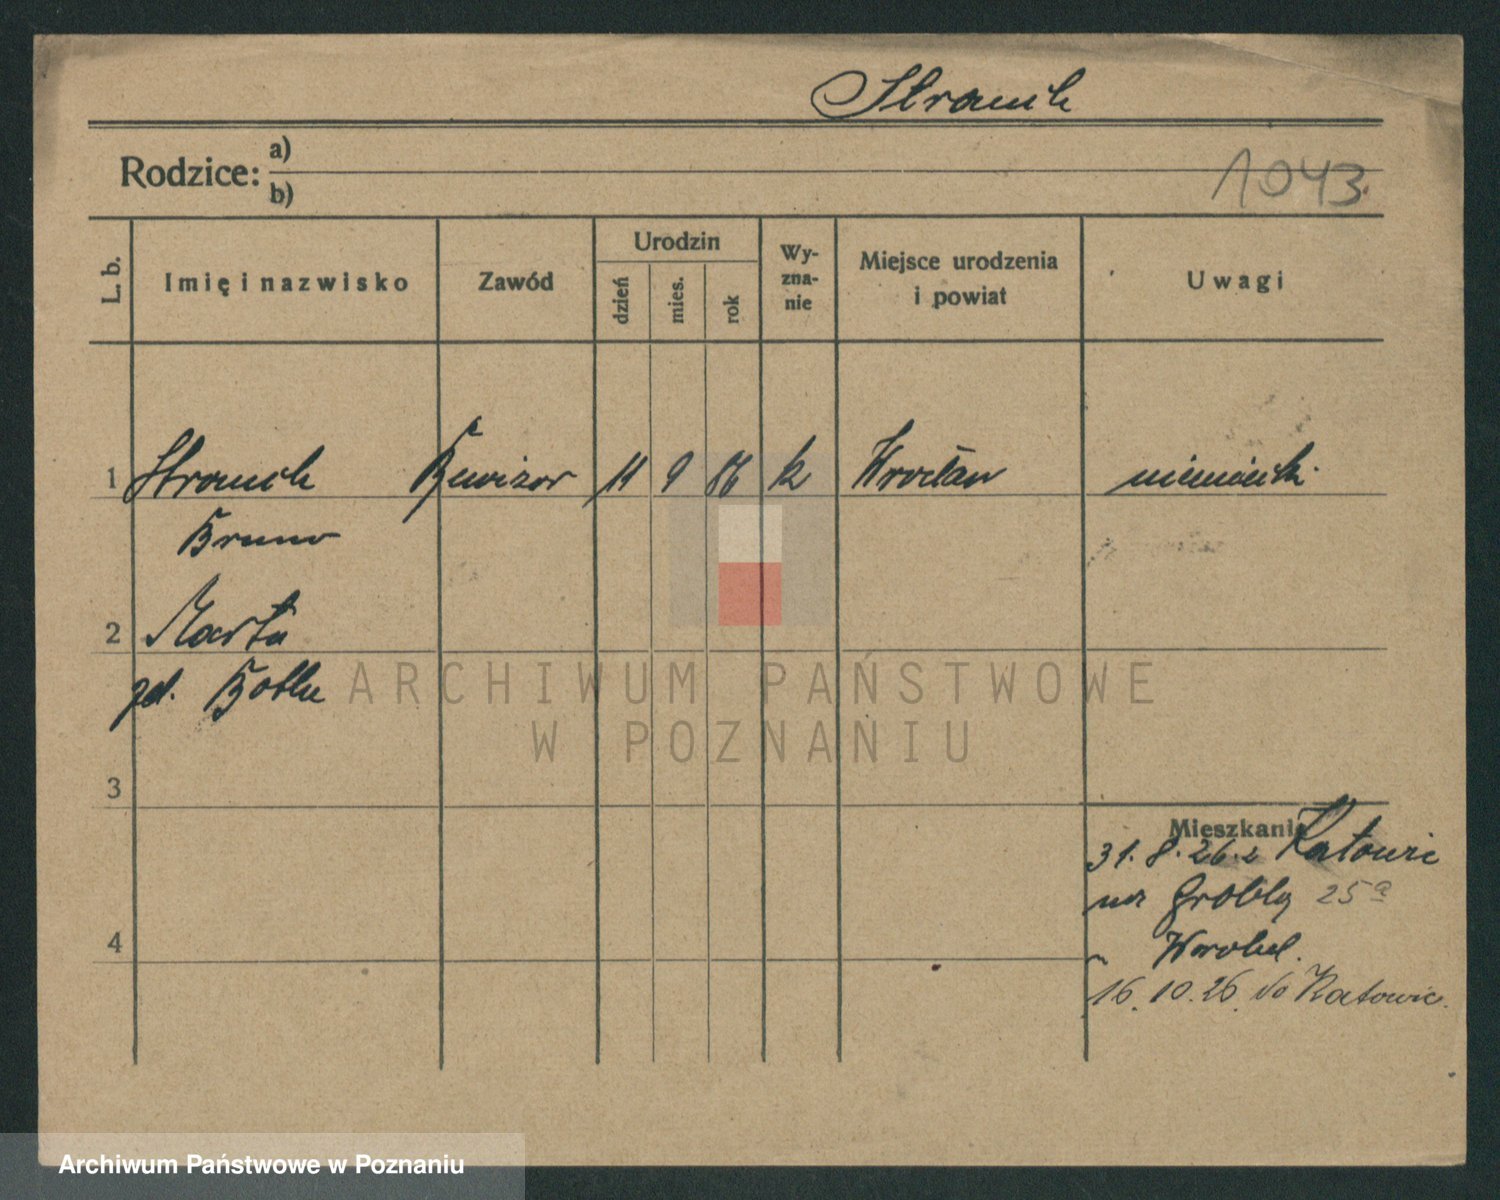 Strauch
Rodzice: a)
b)
1043
L. b.
Imię i nazwisko
Zawód
Urodzin
dzień
mies.
rok
Wy-
zna-
nie
Miejsce urodzenia
i powiat
Uwagi
1 Strauch Rewizor 11 9 86 k Wrocław niemiecki
Bruno
2 Marta
3
Mieszkanie
31.8.26 z Katowic
na Grobla 25a
4
16.10.26 do Katowic.
ARCHIWUM PAŃSTWOWE
W POZNANIU
Archiwum Państwowe w Poznaniu